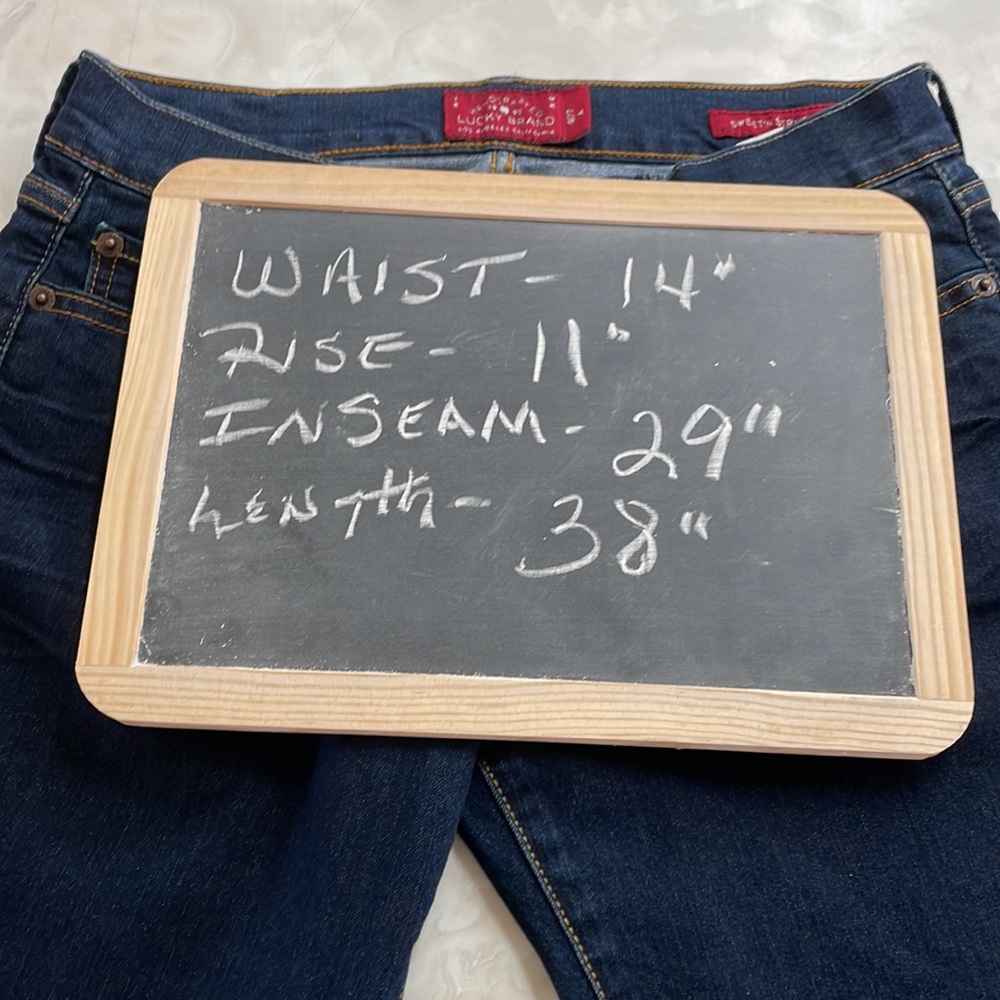 HANDCRAFTED
LUCKY BRAND
LOS ANGELES CALIFORNIA
SWEET'N
WAIST- 14"
RISE- 11"
INSEAM- 29"
LENGTH- 38"